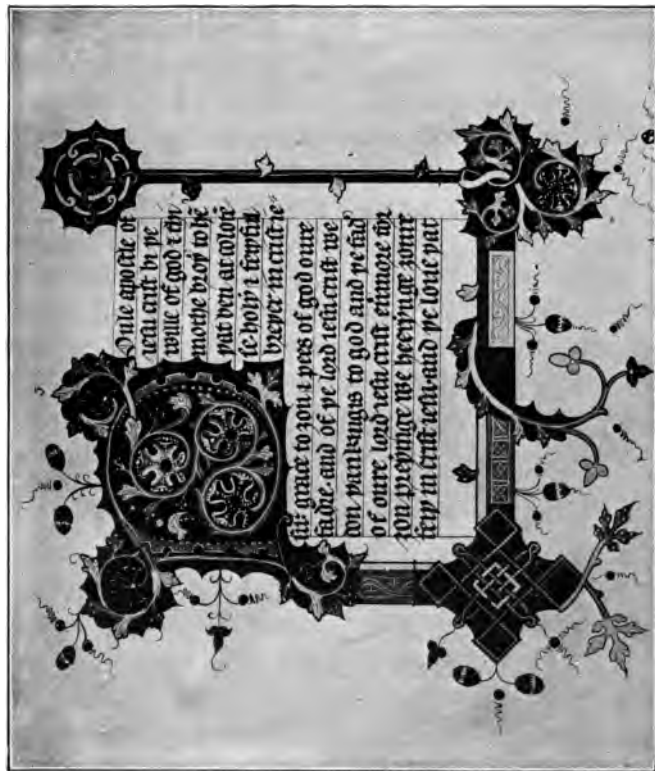 Oule apostle of
iesu crist bi þe
wille of god ⁊ thi
mothe broþ to hē
þat ben at coloſē
ſe hoọly ⁊ feyþful
breþer in criſt ie
ſu: grace to ȝou ⁊ pees of god oure
fadir. and of þe lord ieſu criſt we
don þankyngis to god and þe fad'
of oure lord ieſu criſt euermore for
ȝou preyinge we heerynge ȝoure
feiþ in criſt ieſu. and þe loue þat